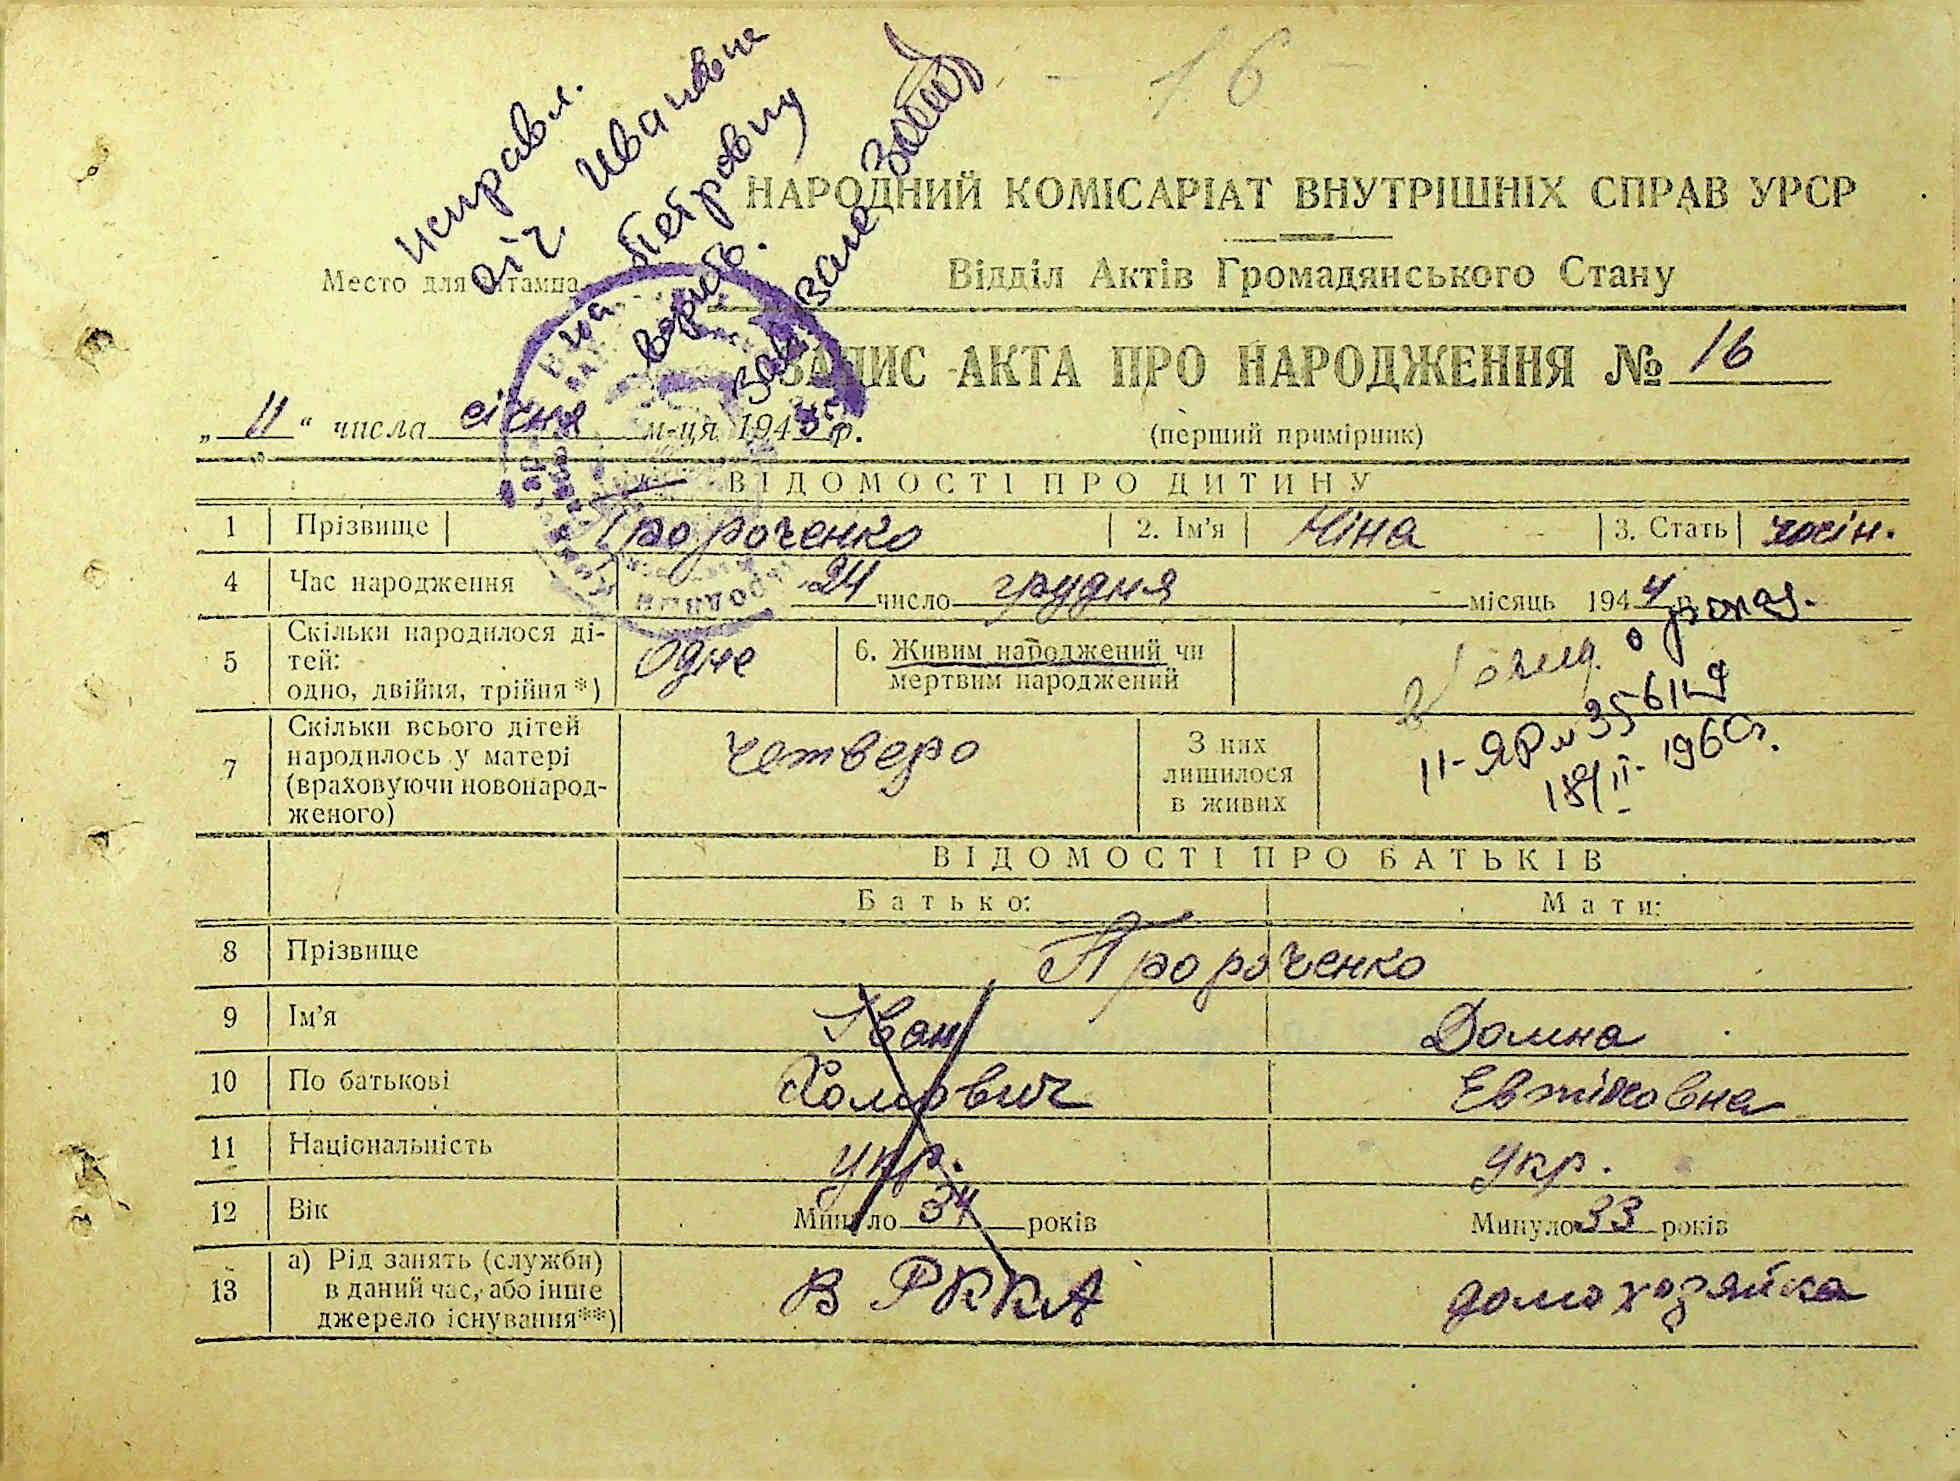 16
исправл.
отч. Ивановна
на Петровну
верить.
НАРОДНИЙ КОМІСАРІАТ ВНУТРІШНІХ СПРАВ УРСР
Место для штампа
Відділ Актів Громадянського Стану
ЗАПИС АКТА ПРО НАРОДЖЕННЯ № 16
„ 11 “ числа січня м-ця 1945 р. (перший примірник)
ВІДОМОСТІ ПРО ДИТИНУ
1 Прізвище Пророченко 2. Ім'я Ніна 3. Стать жін.
4 Час народження 24 число грудня місяць 1944 р.
5 Скільки народилося ді-
тей:
одно, двійня, трійня*) одне 6. Живим народжений чи
мертвим народжений
7 Скільки всього дітей
народилось у матері
(враховуючи новонарод-
женого) четверо З них
лишилося
в живих
11-ЯР № 356129
18/II-1960г.
ВІДОМОСТІ ПРО БАТЬКІВ
Батько: Мати:
8 Прізвище Пророченко
9 Ім'я Іван Домна
10 По батькові Хомович Евтіховна
11 Національність укр. укр.
12 Вік Минуло 34 років Минуло 33 років
13 а) Рід занять (служби)
в даний час, або інше
джерело існування**) в РККА домохозяйка